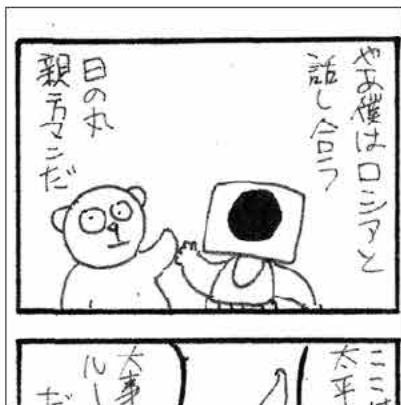 やあ僕はロシアと
話し合う
日の丸
親方マンだ
ここは
太平
大事
ルー
だ